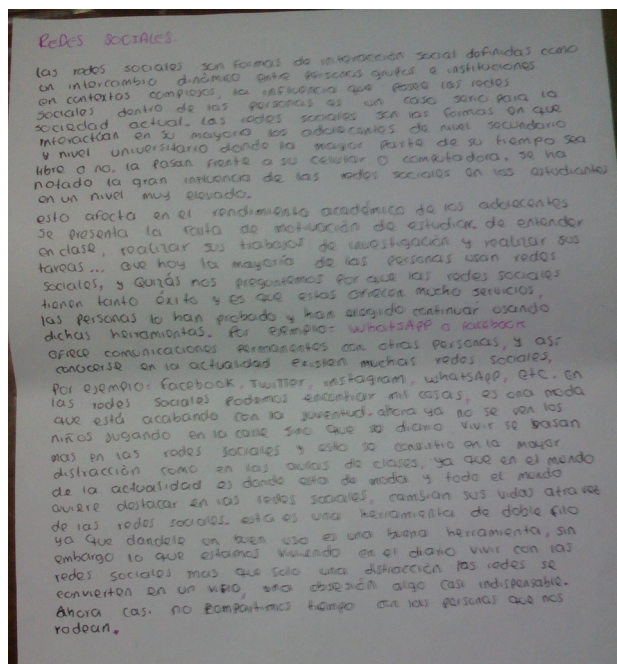 REDES SOCIALES.
las redes sociales son formas de interacción social definidas como
un intercambio dinámico entre personas grupos e instituciones
en contextos complejos, la influencia que posee las redes
sociales dentro de las personas es un caso serio para la
sociedad actual. las redes sociales son las formas en que
interactúan en su mayoría los adolecentes de nivel secundario
y nivel universitario donde la mayor parte de su tiempo sea
libre o no, la pasan frente a su celular o computadora, se ha
notado la gran influencia de las redes sociales en los estudiantes
en un nivel muy elevado.
esto afecta en el rendimiento académico de los adolecentes
se presenta la falta de motivación de estudiar, de entender
en clase, realizar sus trabajos de investigación y realizar sus
tareas... que hoy la mayoría de las personas usan redes
sociales, y quizás nos preguntemos por que las redes sociales
tienen tanto éxito y es que estas ofrecen mucho servicios,
las personas lo han probado y han elegido continuar usando
dichas herramientas. Por ejemplo: WhatsApp o Facebook
ofrece comunicaciones permanentes con otras personas, y así
conocerse en la actualidad existen muchas redes sociales,
Por ejemplo: Facebook, Twitter, instagram, whatsApp, etc. En
las redes sociales podemos encontrar mis cosas, es una moda
que está acabando con la juventud. ahora ya no se ven los
niños jugando en la calle sino que su diario vivir se basan
mas en las redes sociales y esto se convirtio en la mayor
distracción como en las aulas de clases, ya que en el mundo
de la actualidad es donde esta de moda y todo el mundo
quiere destacar en las redes sociales, cambian sus vidas atra vez
de las redes sociales. esta es una herramienta de doble filo
ya que dandole un buen uso es una buena herramienta, sin
embargo lo que estamos viviendo en el diario vivir con las
redes sociales mas que solo una distracción las redes se
convierten en un vicio, una obsesión algo casi indispensable.
Ahora casi no compartimos tiempo con las personas que nos
rodean.